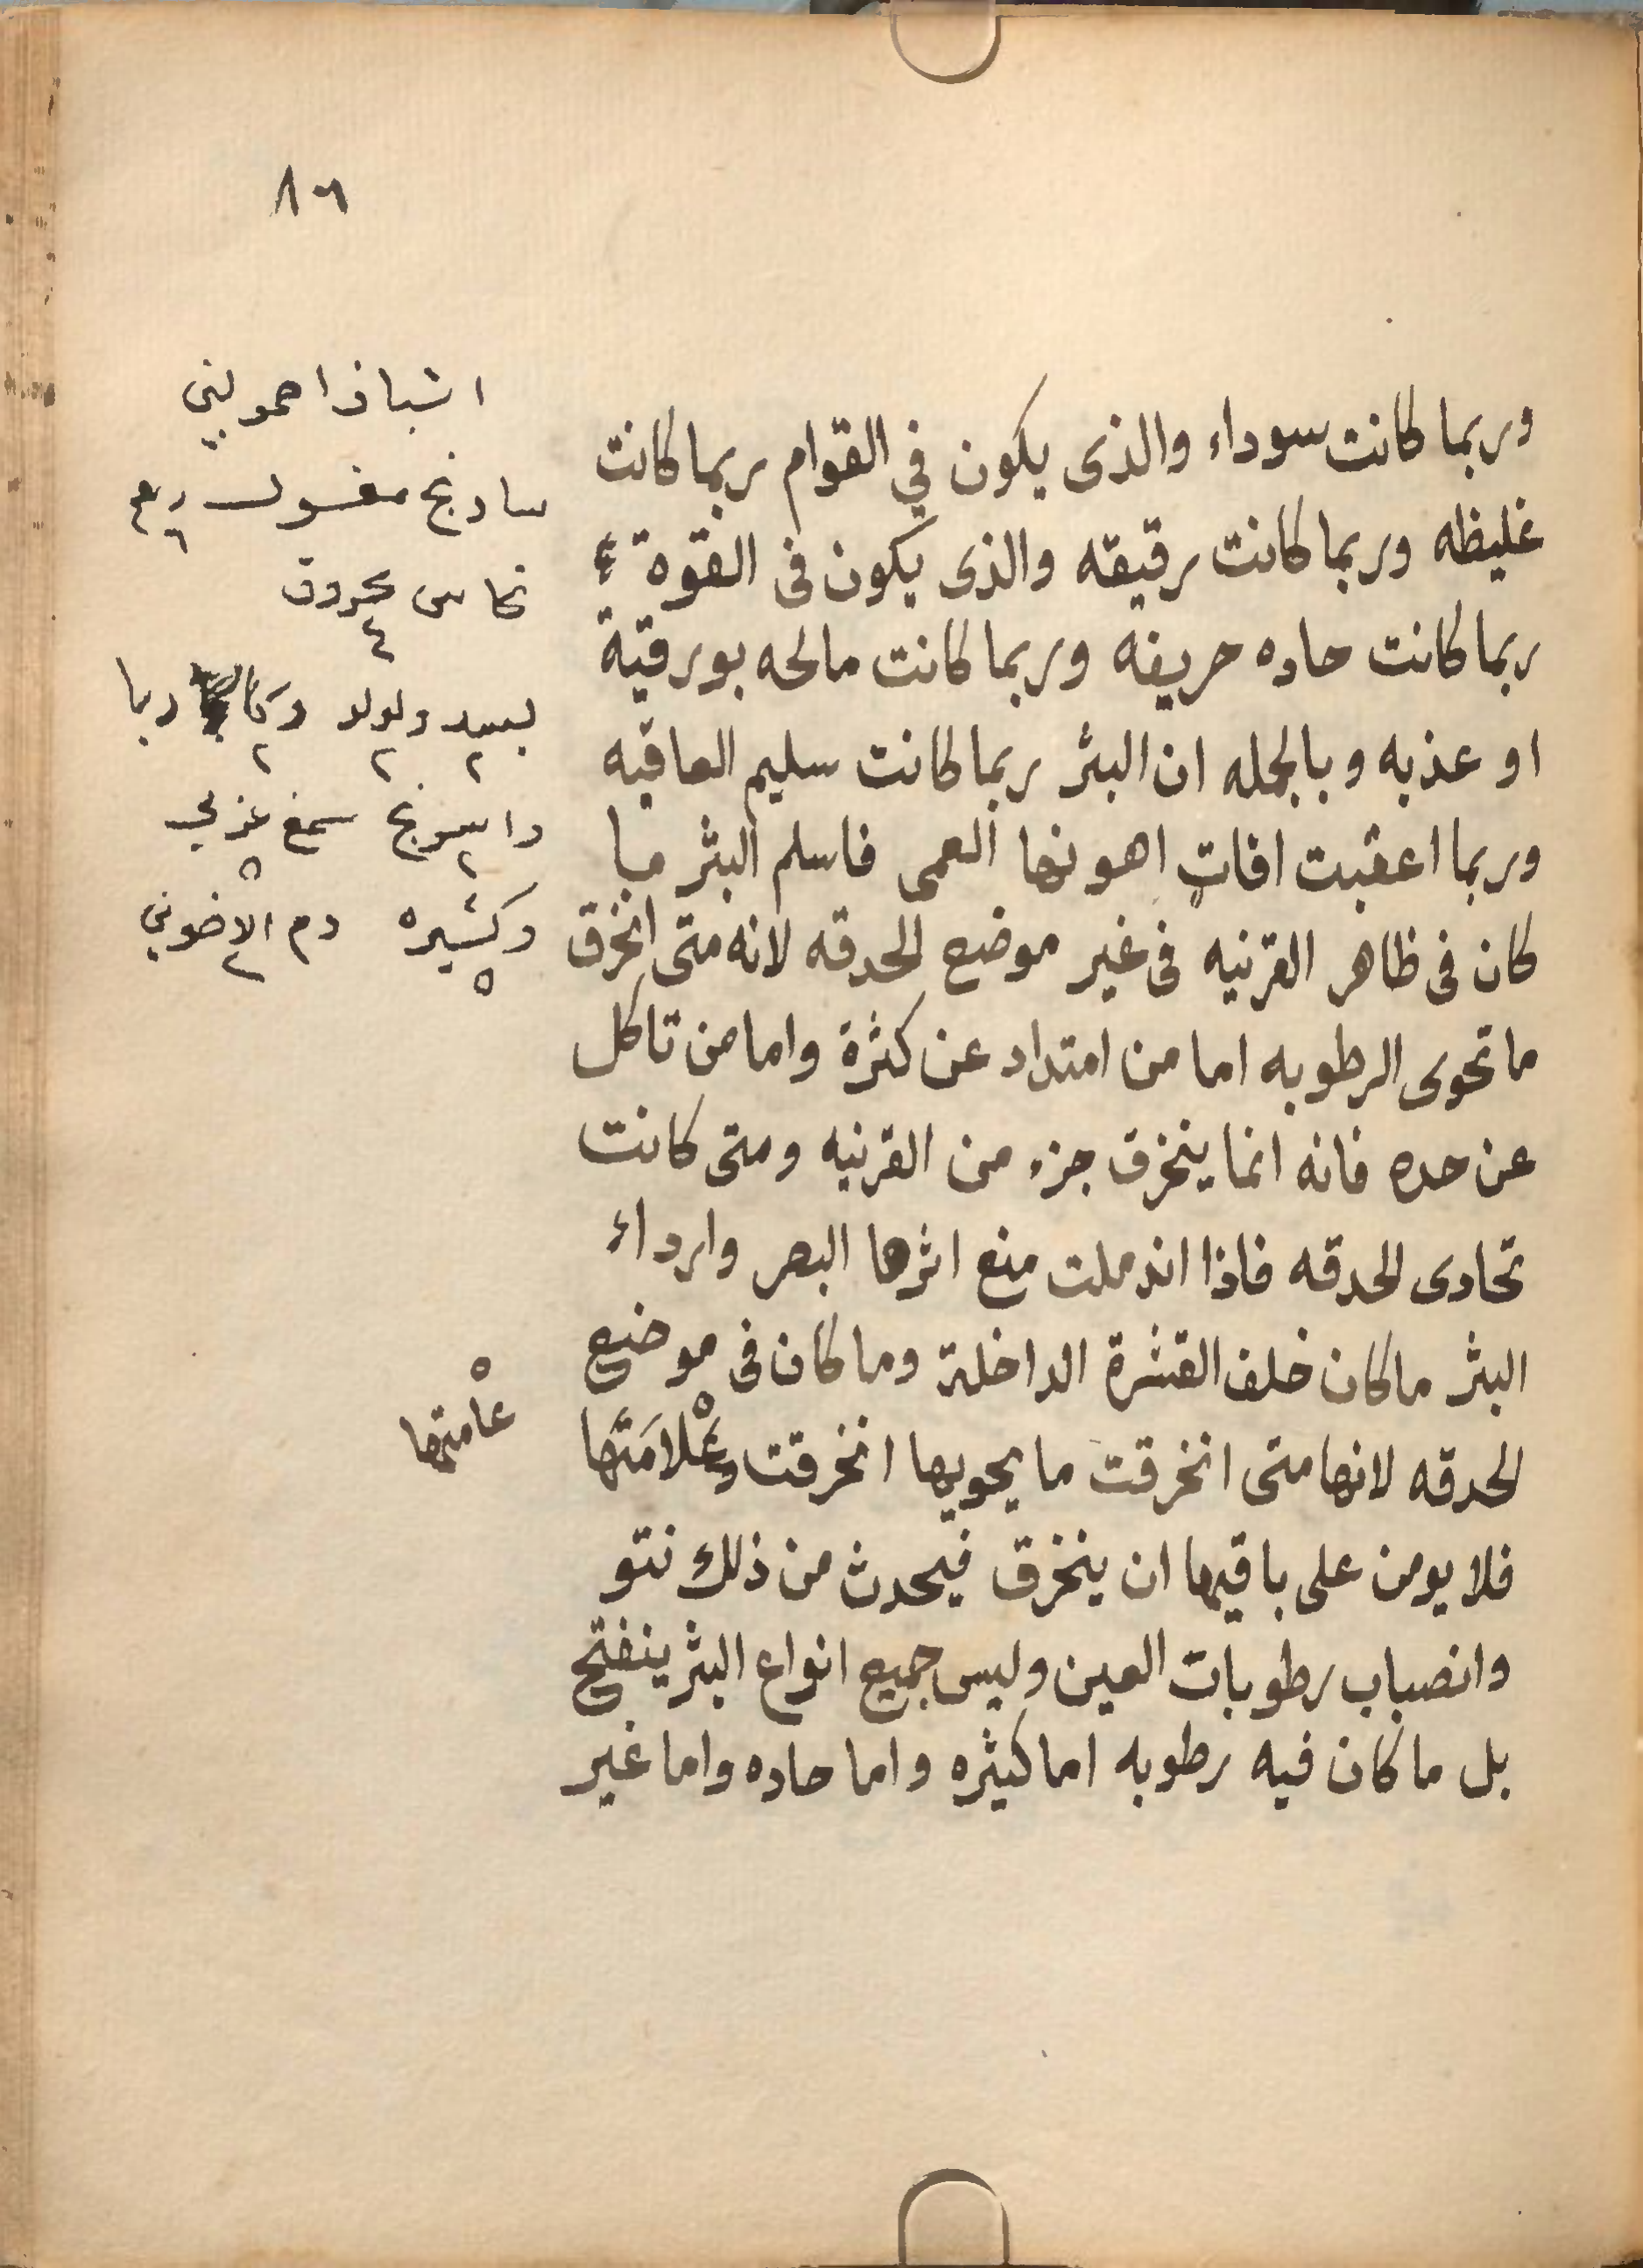 ٨٦
وربما كانت سوداء والذى يكون في القوام ربما كانت
غليظه وربما كانت رقيقه والذى يكون فى القوة
ربما كانت حاده حريفه وربما كانت مالحه بورقية
او عذبه وبالجمله ان البثر ربما كانت سليم العاقبه
وربما اعقبت افاتٍ اهونها العمى فاسلم البثر ما
كان فى ظاهر القرنيه فى غير موضع الحدقه لانه متى انخرق
ما تحوى الرطوبه اما من امتداد عن كثرة واما من تاكل
عن حده فانه انما ينخرق جزء من القرنيه ومتى كانت
تحادى الحدقه فاذا اندملت منع اثرها البصر وارداء
البثر ماكان خلف القشرة الداخلة وما كان فى موضع
الحدقه لانها متى انخرقت ما يحويها انخرقت وعْلامَتَها
فلا يومن على باقيها ان ينخرق فيحدث من ذلك نتو
وانصباب رطوبات العين وليس جميع انواع البثر ينفتح
بل ما كان فيه رطوبه اما كثيره واما حاده واما غير
سادنج مغسول
٦
نحاس محروق
٤
لبسد ولولو
٢ ٢ ٢
صمغ عربى
٢ ٨
وكشيره دم الاخوين
٥ ٢
عامتها